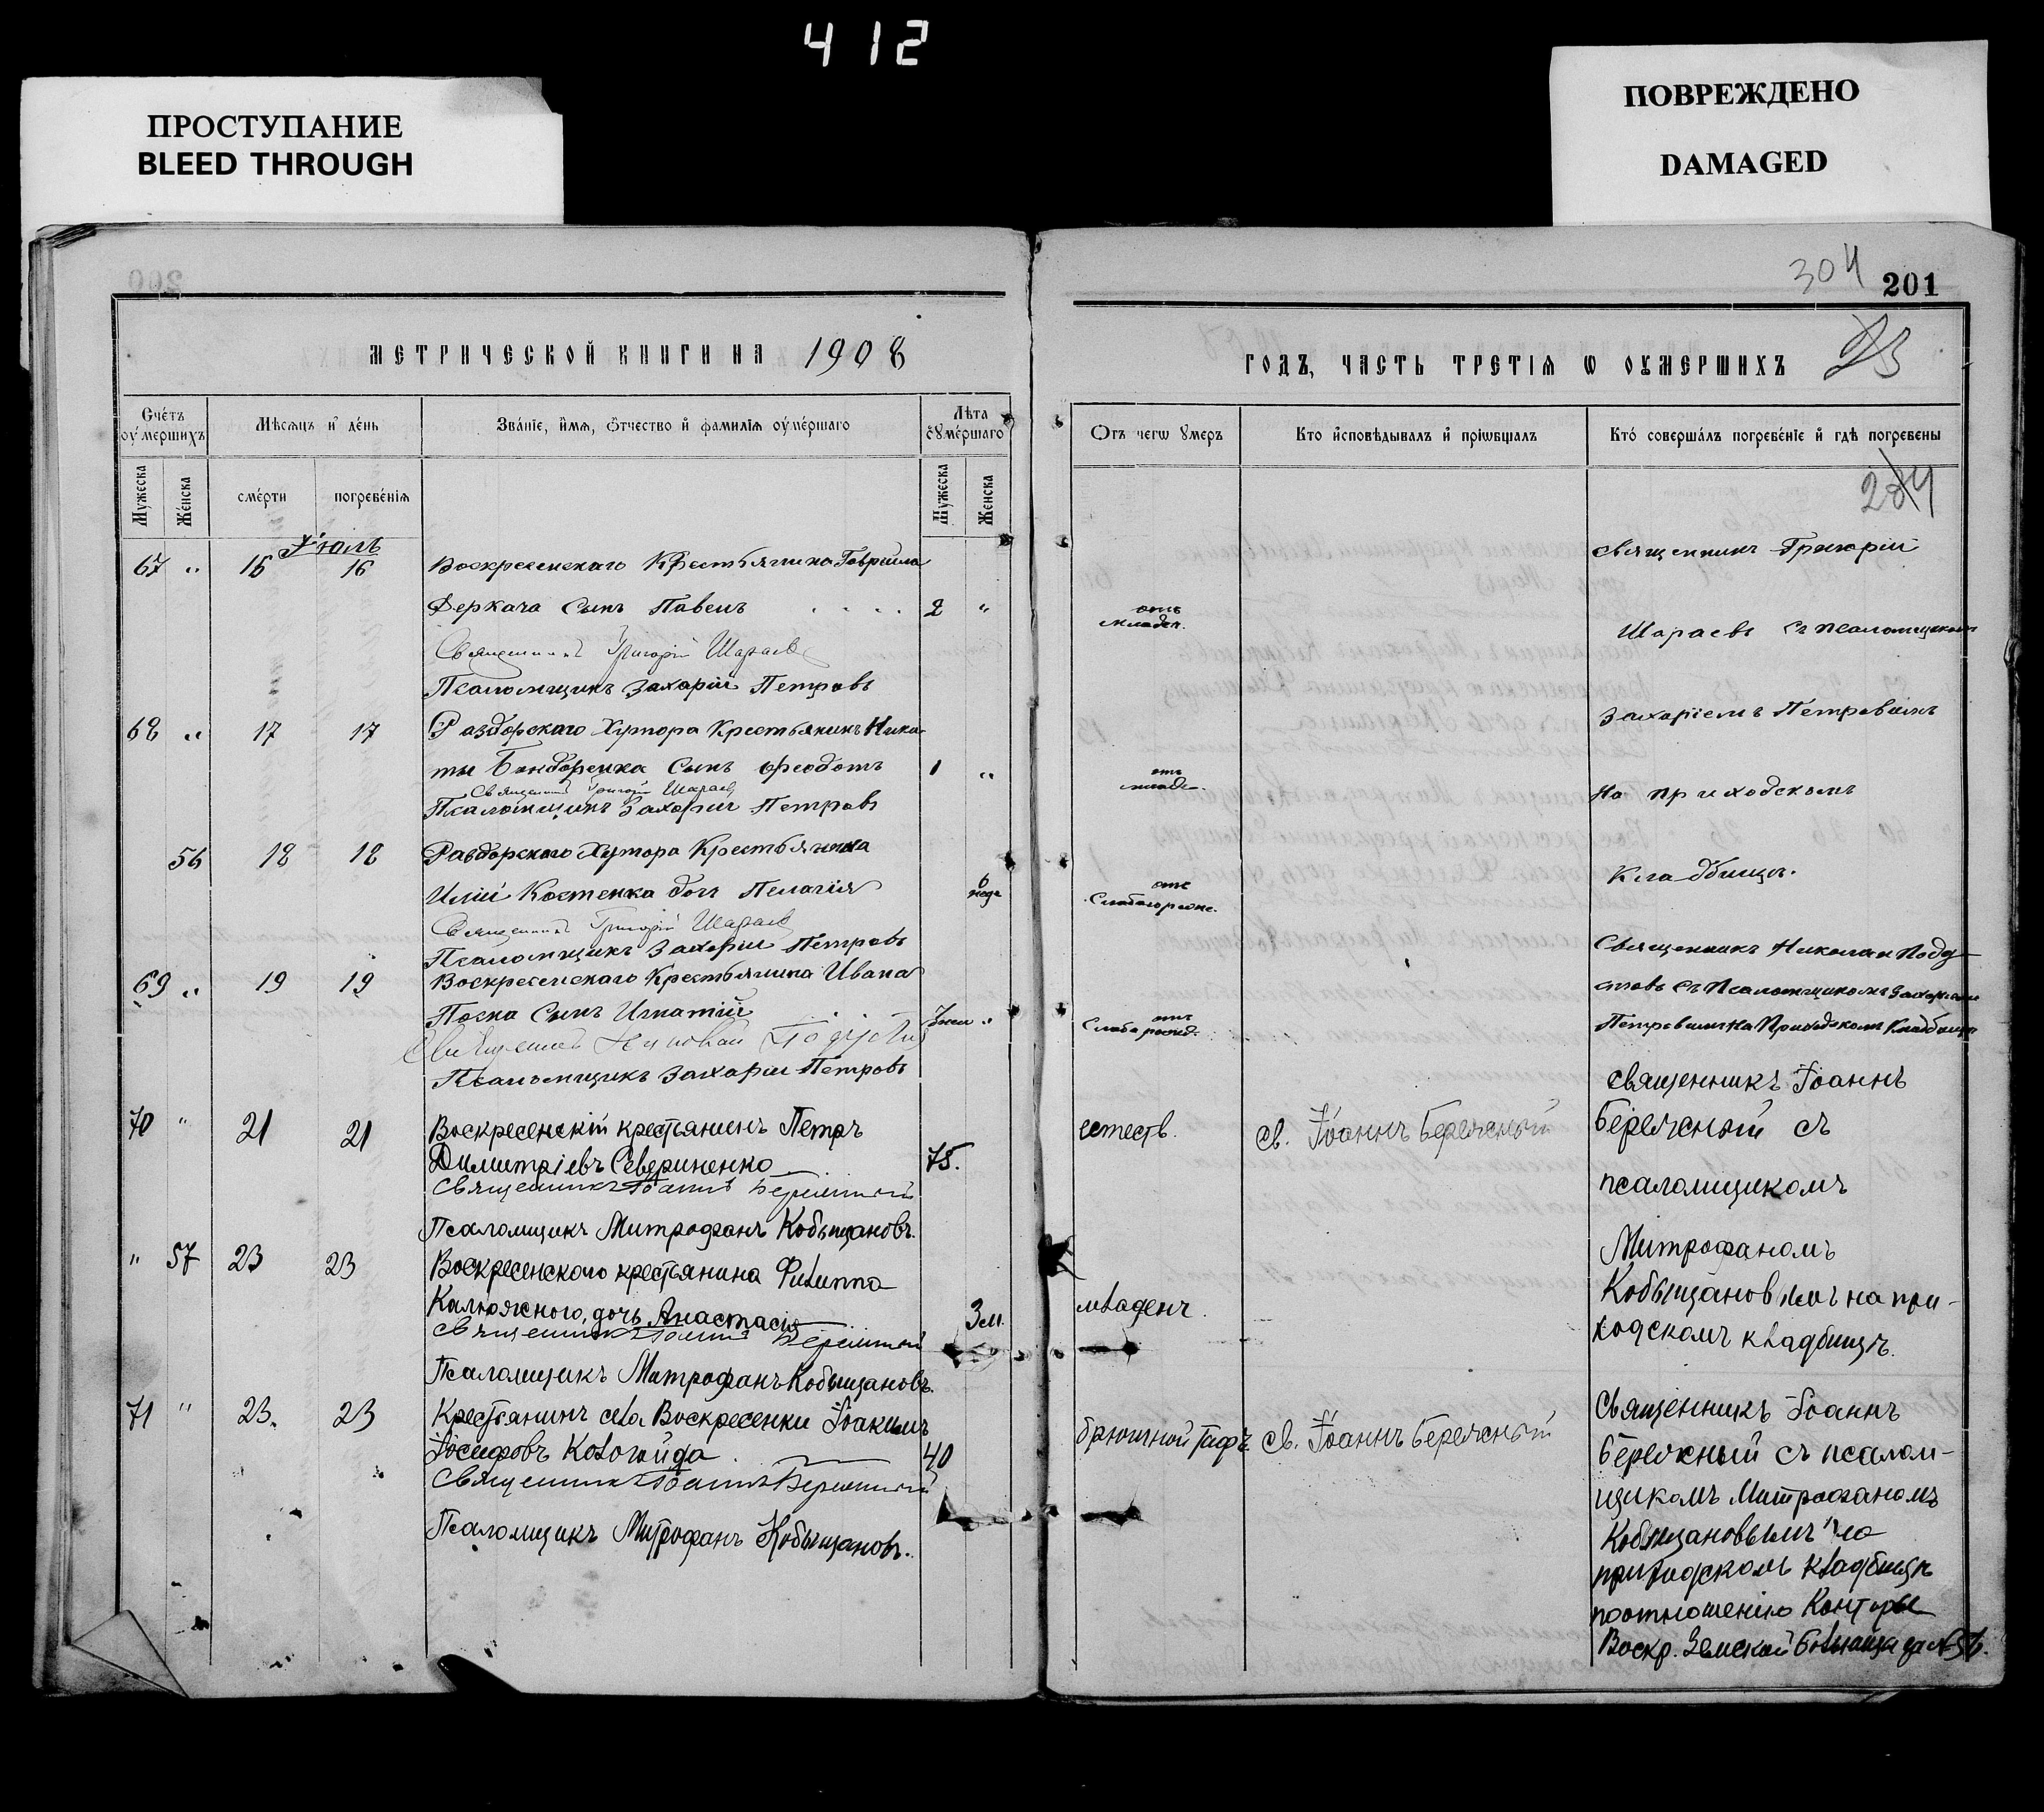 412
ПРОСТУПАНИЕ
BLEED THROUGH
ПОВРЕЖДЕНО
DAMAGED
304 201
МЕТРИЧЕСКОЙ КНИГИ НА 1908
ГОДЪ, ЧАСТЬ ТРЕТІѦ Ѡ ОУМЕРШИХЪ
Счётъ оумершихъ
Мѣсѧцъ и день
Званіе, имѧ, ѿчество и фамиліѧ оумершаго
Лѣта оумершаго
Мужеска
Женска
смерти
погребеніѧ
Мужеска
Женска
Отъ чегѡ умеръ
Кто исповѣдывалъ и пріѡбщалъ
Кто совершалъ погребеніе и гдѣ погребены
204
Іюль
67 " 15 16 Воскресенскаго Крестьянина Гавріила
Деркача Сынъ Павелъ 2 "
Священникъ Григорій Шараевъ
Псаломщикъ Захарій Петровъ
68 " 17 17 Раздорскаго Хутора Крестьянинъ Ники-
ты Бондаренка Сынъ Феодотъ 1 "
Священникъ Григорій Шараевъ
Псаломщикъ Захарій Петровъ
56 18 18 Раздорскаго Хутора Крестьянина
Иліи Костенка дочь Пелагія 6 неде
Священникъ Григорій Шараевъ
Псаломщикъ Захарій Петровъ
69 " 19 19 Воскресенскаго Крестьянина Ивана
Сынъ Игнатій "
Священникъ Николай
Псаломщикъ Захарій Петровъ
70 " 21 21 Воскресенскій крестьянинъ Петръ
Димитріевъ Севериненко 75.
Священникъ Іоаннъ Бережный
Псаломщикъ Митрофанъ Кобыщановъ.
" 57 23 23 Воскресенскаго крестьянина Филиппа
Калюжного, дочь Анастасія 3 м.
Священникъ Іоаннъ Бережный
Псаломщикъ Митрофанъ Кобыщановъ.
71 " 23. 23 Крестьянинъ села Воскресенки Іоакимъ
Іосифовъ Кологойда 40
Священникъ Іоаннъ Бережный
Псаломщикъ Митрофанъ Кобыщановъ.
отъ
младен.
отъ
младе.
отъ
отъ
естеств. св. Іоаннъ Бережный
младенч.
брюшной тифъ св. Іоаннъ Бережный
священникъ Григорій
Шараевъ съ псаломщикомъ
Захаріемъ Петровымъ
на приходскомъ
кладбищѣ.
Священникъ Николай
съ Псаломщикомъ Захаріемъ
Петровымъ на Приходскомъ Кладбищѣ
священникъ Іоаннъ
Бережный съ
псаломщикомъ
Митрофаномъ
Кобыщановымъ на при-
ходскомъ кладбищѣ.
Священникъ Іоаннъ
Бережный съ псалом-
щикомъ Митрофаномъ
Кобыщановымъ на
приходскомъ кладбищѣ
по отношенію Конторы
Воскр. Земской больницы за №